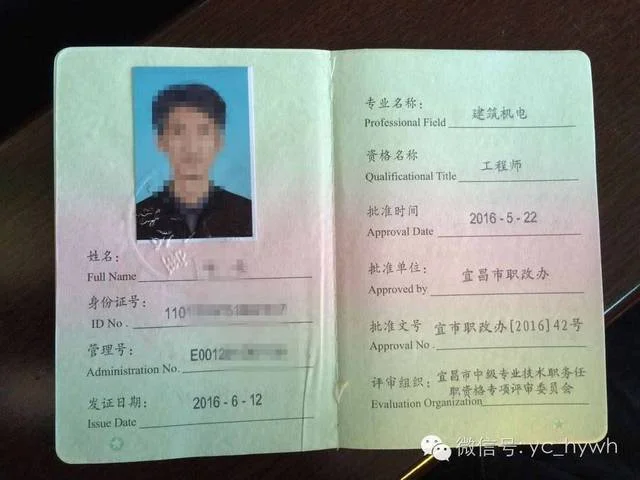 姓名:
Full Name
身份证号:
ID No. 110
管理号:
Administration No. E0012
发证日期:
Issue Date 2016-6-12
专业名称:
Professional Field 建筑机电
资格名称
Qualificational Title 工程师
批准时间
Approval Date 2016-5-22
批准单位:
Approved by 宜昌市职改办
批准文号
Approval No. 宜市职改办[2016]42号
评审组织: 宜昌市中级专业技术职务任
职资格专项评审委员会
Evaluation Organization
微信号: yc_hywh